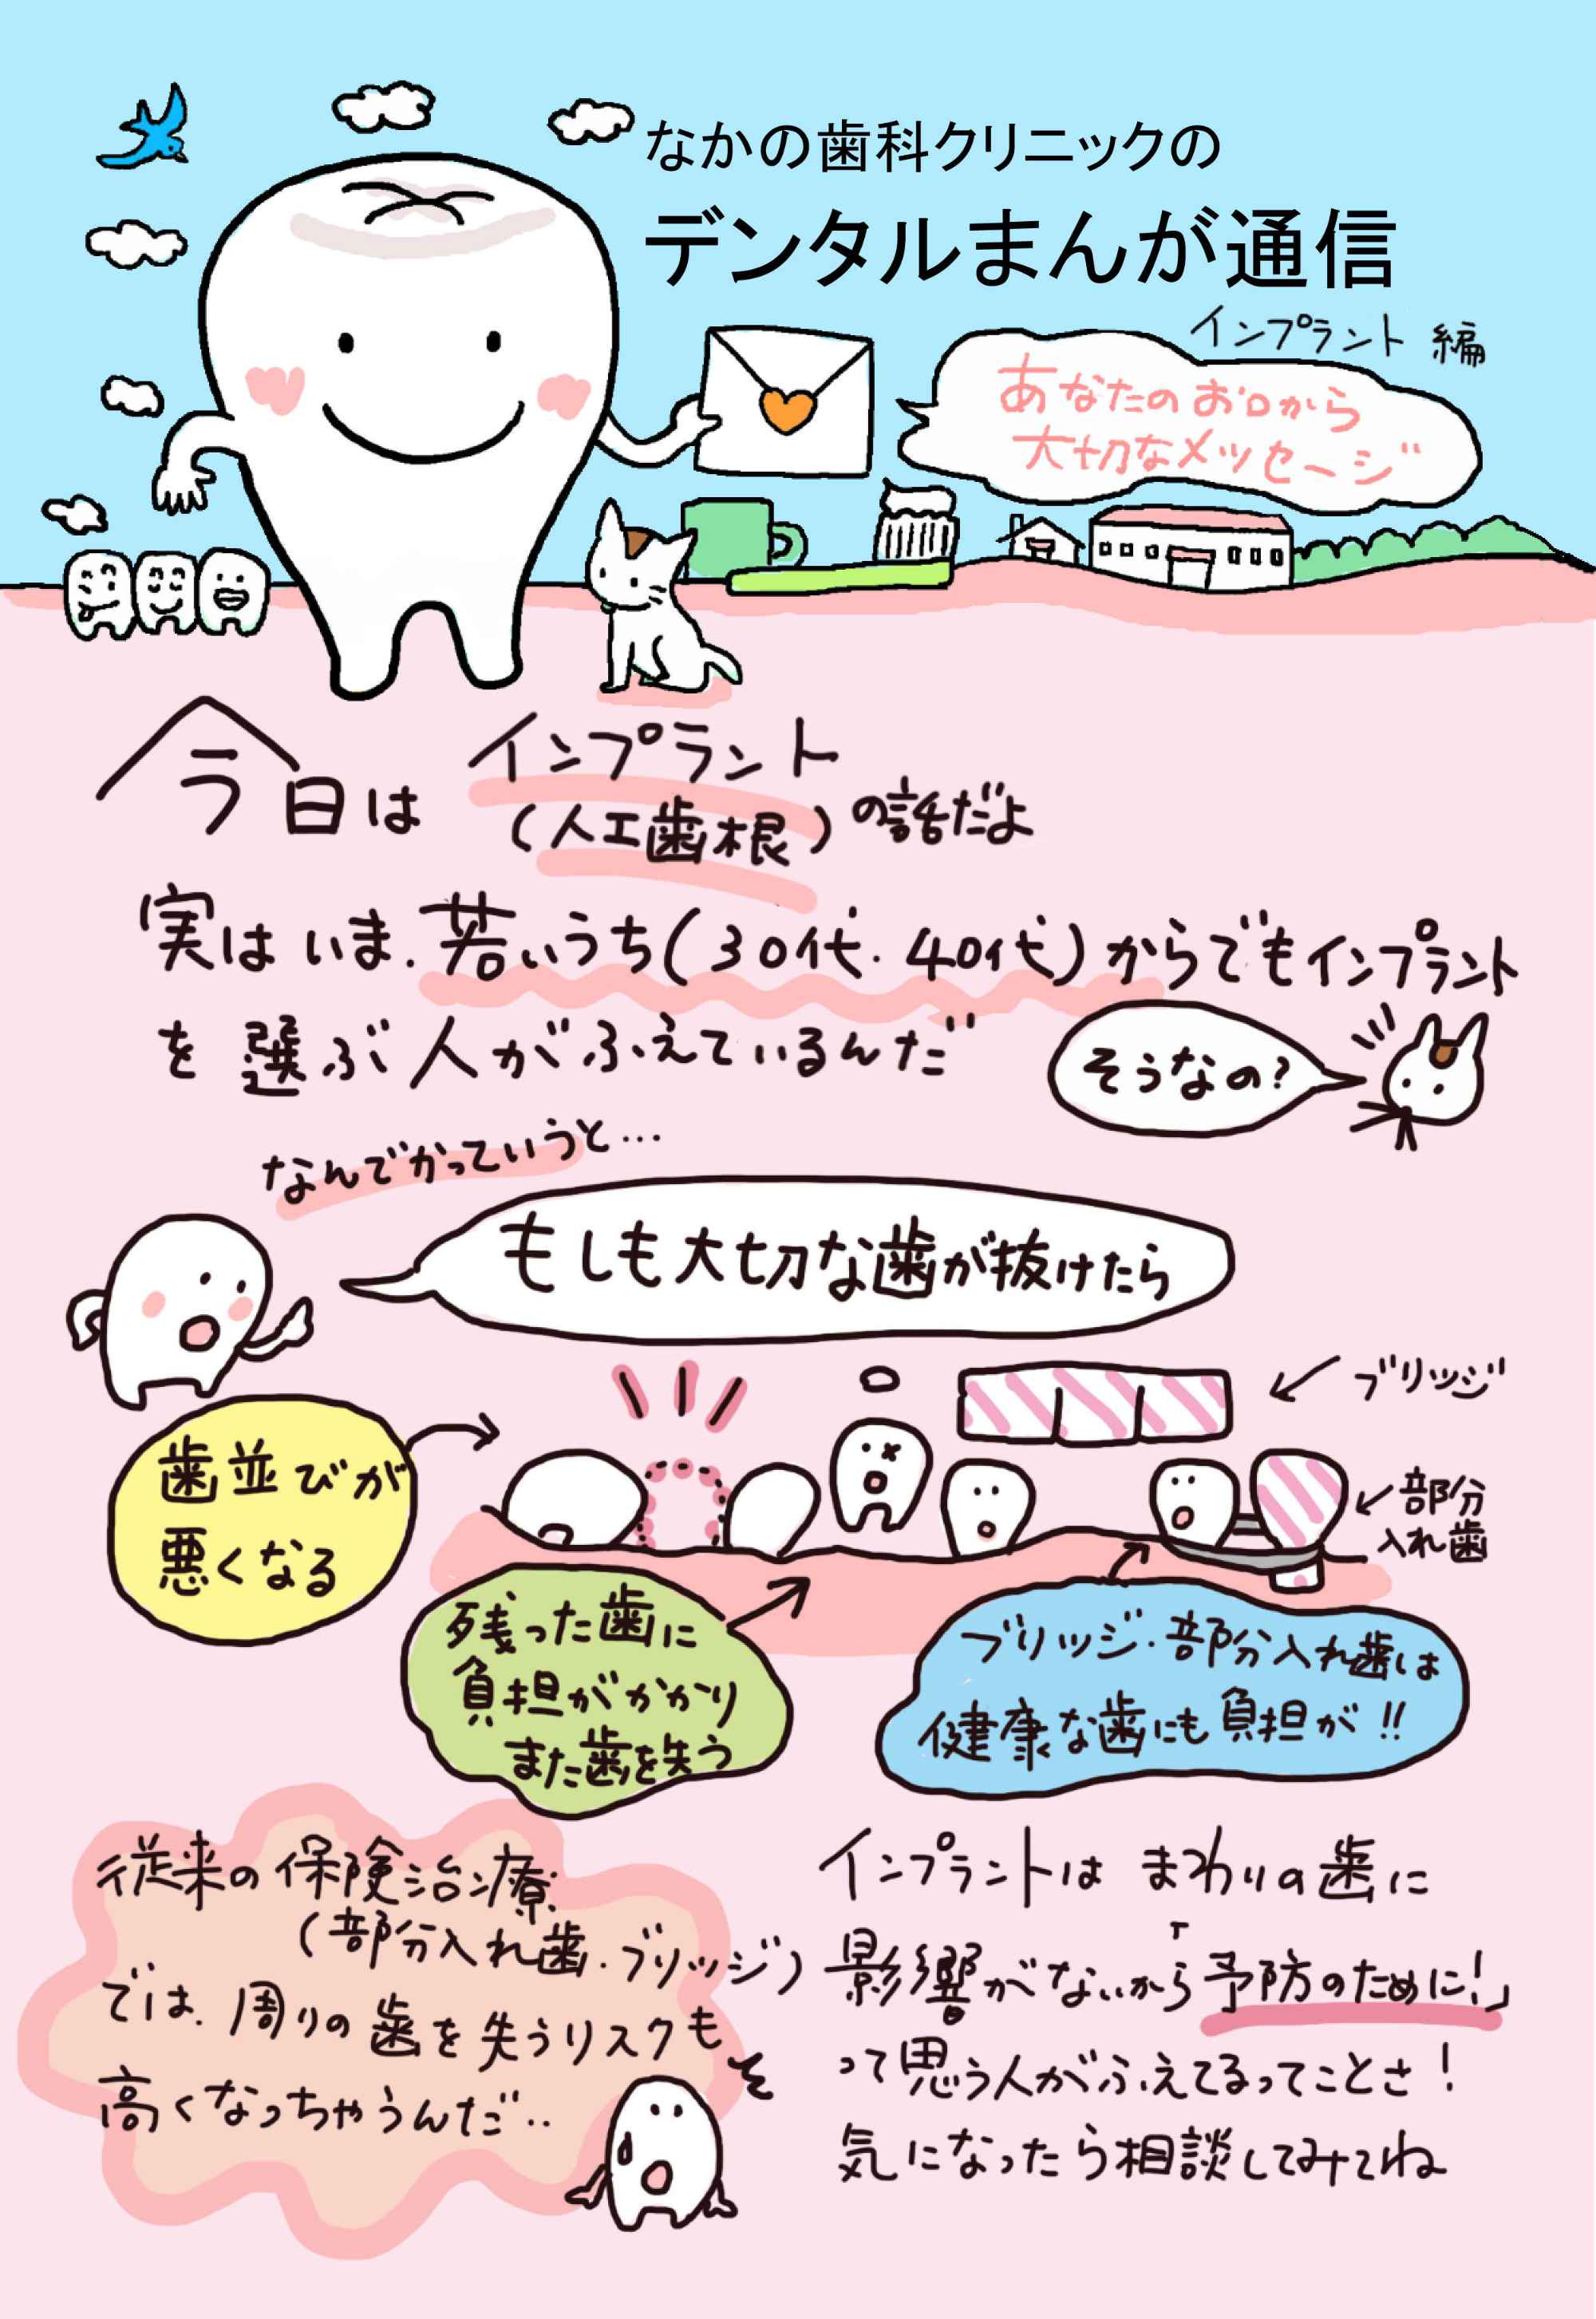 なかの歯科クリニックの
デンタルまんが通信
インプラント編
あなたのお口から
大切なメッセージ
今日は インプラント
(人工歯根)の話だよ
実はいま、若いうち(30代・40代)からでもインプラント
を選ぶ人がふえているんだ
そうなの?
なんでかっていうと…
もしも大切な歯が抜けたら
ブリッジ
歯並びが
悪くなる
部分
入れ歯
残った歯に
負担がかかり
また歯を失う
ブリッジ・部分入れ歯は
健康な歯にも負担が!!
従来の保険治療
(部分入れ歯・ブリッジ)
では、周りの歯を失うリスクも
高くなっちゃうんだ‥
インプラントは まわりの歯に
影響がないから「予防のために!」
って思う人がふえてるってことさ!
気になったら相談してみてね